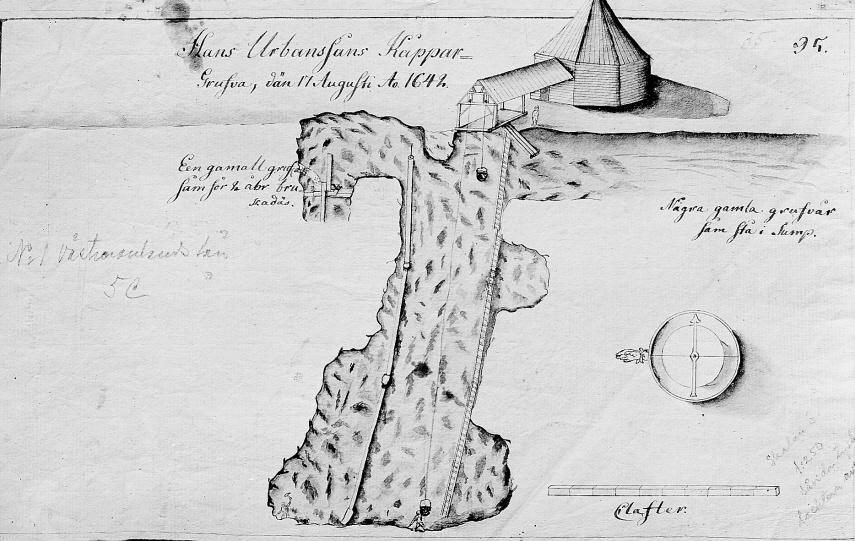 35.
Hans Urbanssans Kåppar=
Grufva, dän 17 Augusti Ao. 1642.
Een gamall gruf
såm för ½ åhr bru
skadäs.
Några gamla grufvår
såm stå i Sump.
No 1 län
5C
Clafter.
Skalan
1:250